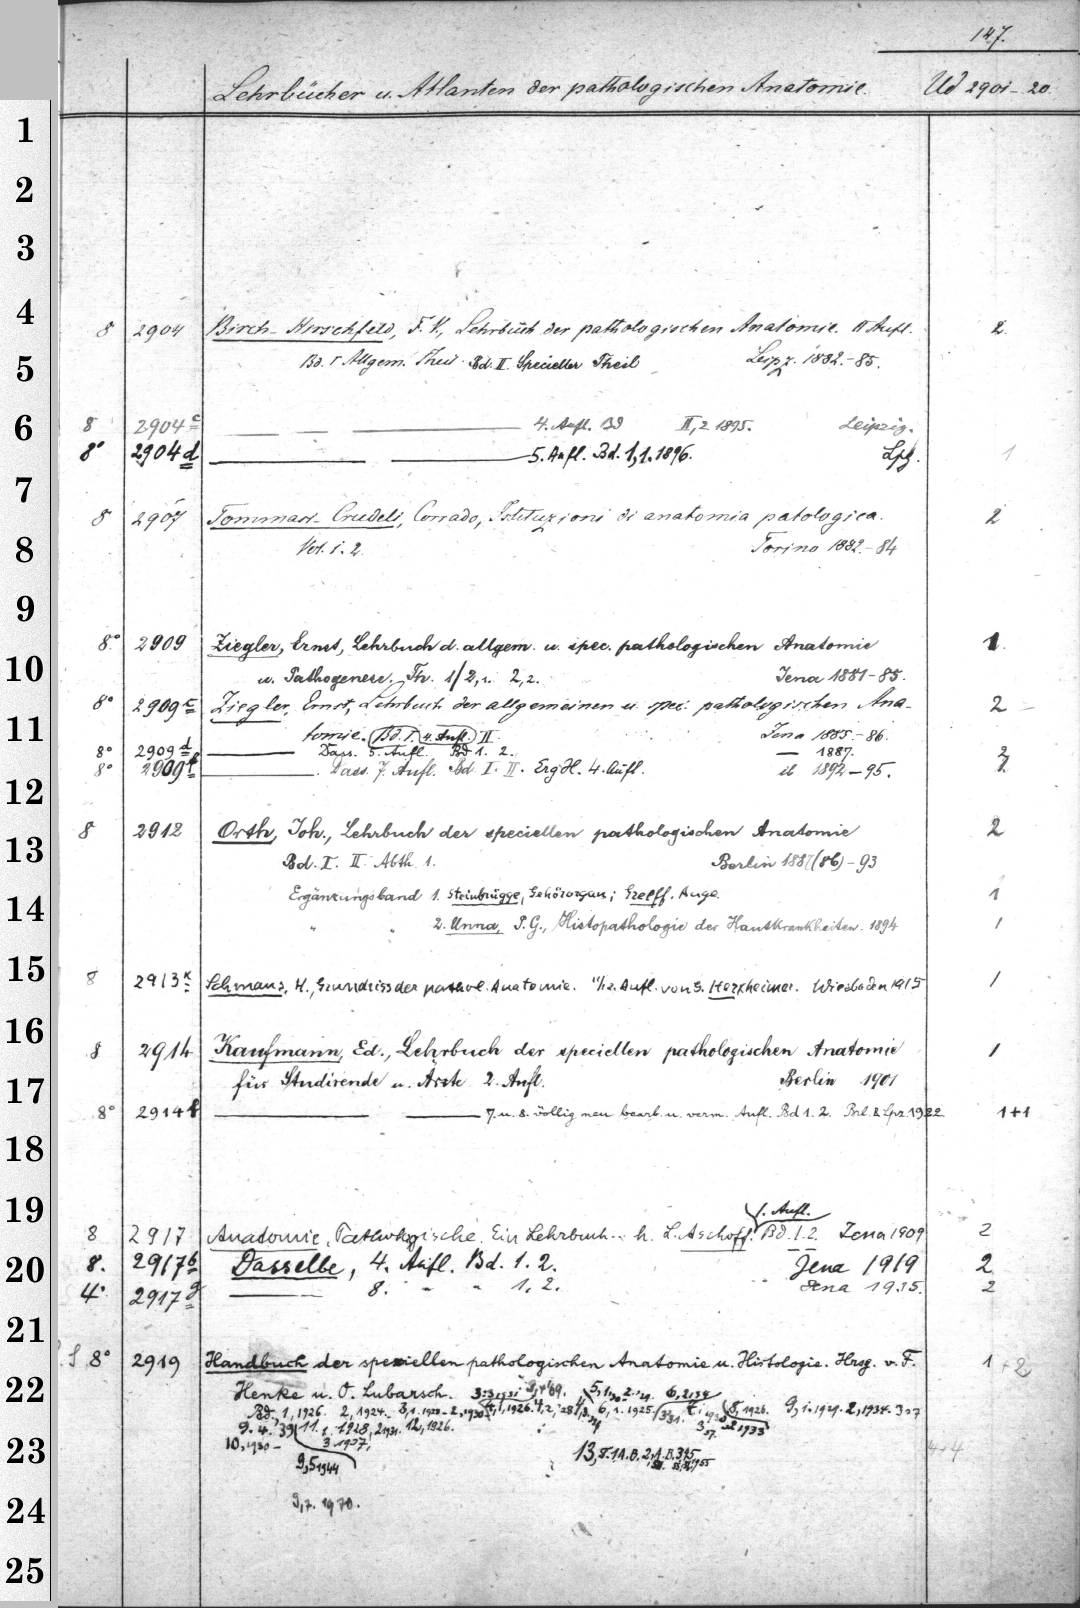 147.
Lehrbücher u. Atlanten der pathologischen Anatomie. Ud 2901-20.
1
2
3
4
8 2904 Birch-Hirschfeld, F. V., Lehrbuch der pathologischen Anatomie. II Aufl. 2
5
Bd. I Allgem. Theil Bd. II Specieller Theil Leipz. 1882.-85.
6
8 2904 c 4. Aufl. Bd II,2 1895. Leipzig.
8° 2904 d 5. Aufl. Bd. 1,1. 1896. Lpz. 1
7
8 2907 Tommasi-Crudeli, Corrado, Istituzioni di anatomia patologica. 2
8
Vol. 1. 2. Torino 1882.-84
9
8° 2909 Ziegler, Ernst, Lehrbuch d. allgem. u. spec. pathologischen Anatomie 1
10
u. Pathogenese. Th. 1/2,1. 2,2. Jena 1881-85.
8° 2909 c Ziegler, Ernst, Lehrbuch der allgemeinen u. spec. pathologischen Ana- 2
11
tomie. Bd. I. 4. Aufl. II Jena 1885.-86.
8° 2909 d Dass. 5. Aufl. Bd 1. 2. — 1887. 2
8° 2909 f Dass. 7. Aufl. Bd I. II. Erg H. 4. Aufl. ib 1892-95.
12
8 2912 Orth, Joh., Lehrbuch der speciellen pathologischen Anatomie 2
13
Bd. I. II Abth. 1. Berlin 1887(86)-93
14
Ergänzungsband 1. Steinbrügge, Gehörorgan; Greeff, Auge. 1
" " 2. Unna, P. G., Histopathologie der Hautkrankheiten. 1894 1
15
8 2913 k Schmaus, H., Grundriss der pathol. Anatomie. 11/12. Aufl. von G. Herxheimer. Wiesbaden 1915 1
16
8 2914 Kaufmann, Ed., Lehrbuch der speciellen pathologischen Anatomie 1
17
für Studirende u. Ärzte 2. Aufl. Berlin 1901
8° 2914 f 7. u. 8. völlig neu bearb. u. verm. Aufl. Bd 1. 2. Brl. & Lpz. 1922 1+1
18
19
1. Aufl.
8 2917 Anatomie, Pathologische. Ein Lehrbuch .. h. L. Aschoff. Bd. 1. 2. Jena 1909 2
20
8. 2917 b Dasselbe, 4. Aufl. Bd. 1. 2. Jena 1919 2
4° 2917 g 8. " " 1. 2. " Jena 1935. 2
21
8° 2919 Handbuch der speziellen pathologischen Anatomie u. Histologie. Hrsg. v. F. 1+2
22
Henke u. O. Lubarsch. 6,2 1934
Bd. 1, 1926. 2, 1924. 3,1. 1928-2, 1930 6,1. 1925. 8,1 1926. 9,1. 1929. 2, 1934. 3 37
9. 4. 39 11. 1. 1928, 2 1931. 12, 1926.
23
10, 1930- 3 1937, 4+4
9,5 1944
24
9,7. 1970.
25